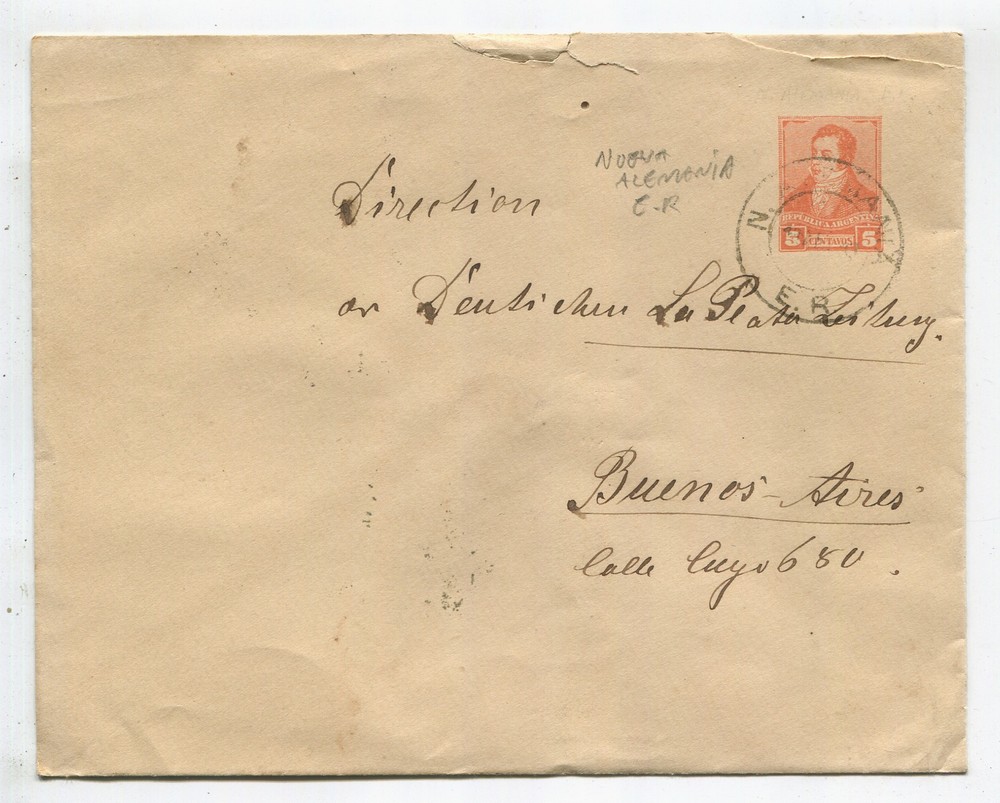 NUEVA
ALEMANIA
E.R
Direction
REPUBLICA ARGENTINA
5 CENTAVOS 5
N.
E. R.
Deutschen La Plata Zeitung.
Buenos-Aires
Calle Cuyo 680.